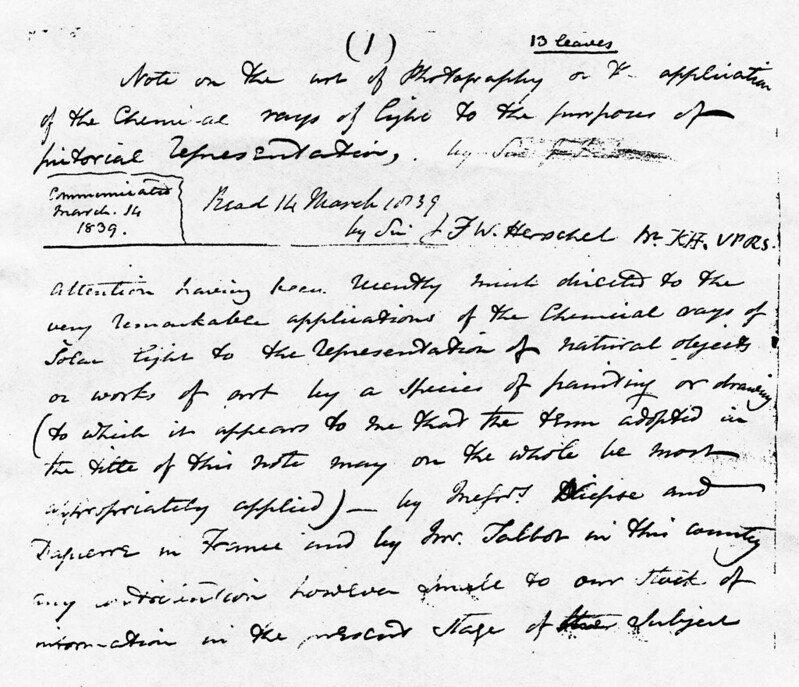 (1)
13 leaves
Note on the art of Photography or the application
of the Chemical rays of light to the purposes of
pictorial representation, by Sir
Communicated
March. 14
1839.
Read 14 March 1839
by Sir J F W. Herschel Bt. KH. VPRS.
Attention having been recently much directed to the
very remarkable applications of the Chemical rays of
Solar light to the representation of natural objects
or works of art by a species of painting or drawing
(to which it appears to me that the term adopted in
the title of this note may on the whole be most
appropriately applied) — by Messrs. Niepse and
Daguerre in France and by Mr. Talbot in this country
any however small to our stock of
information in the present stage of the subject